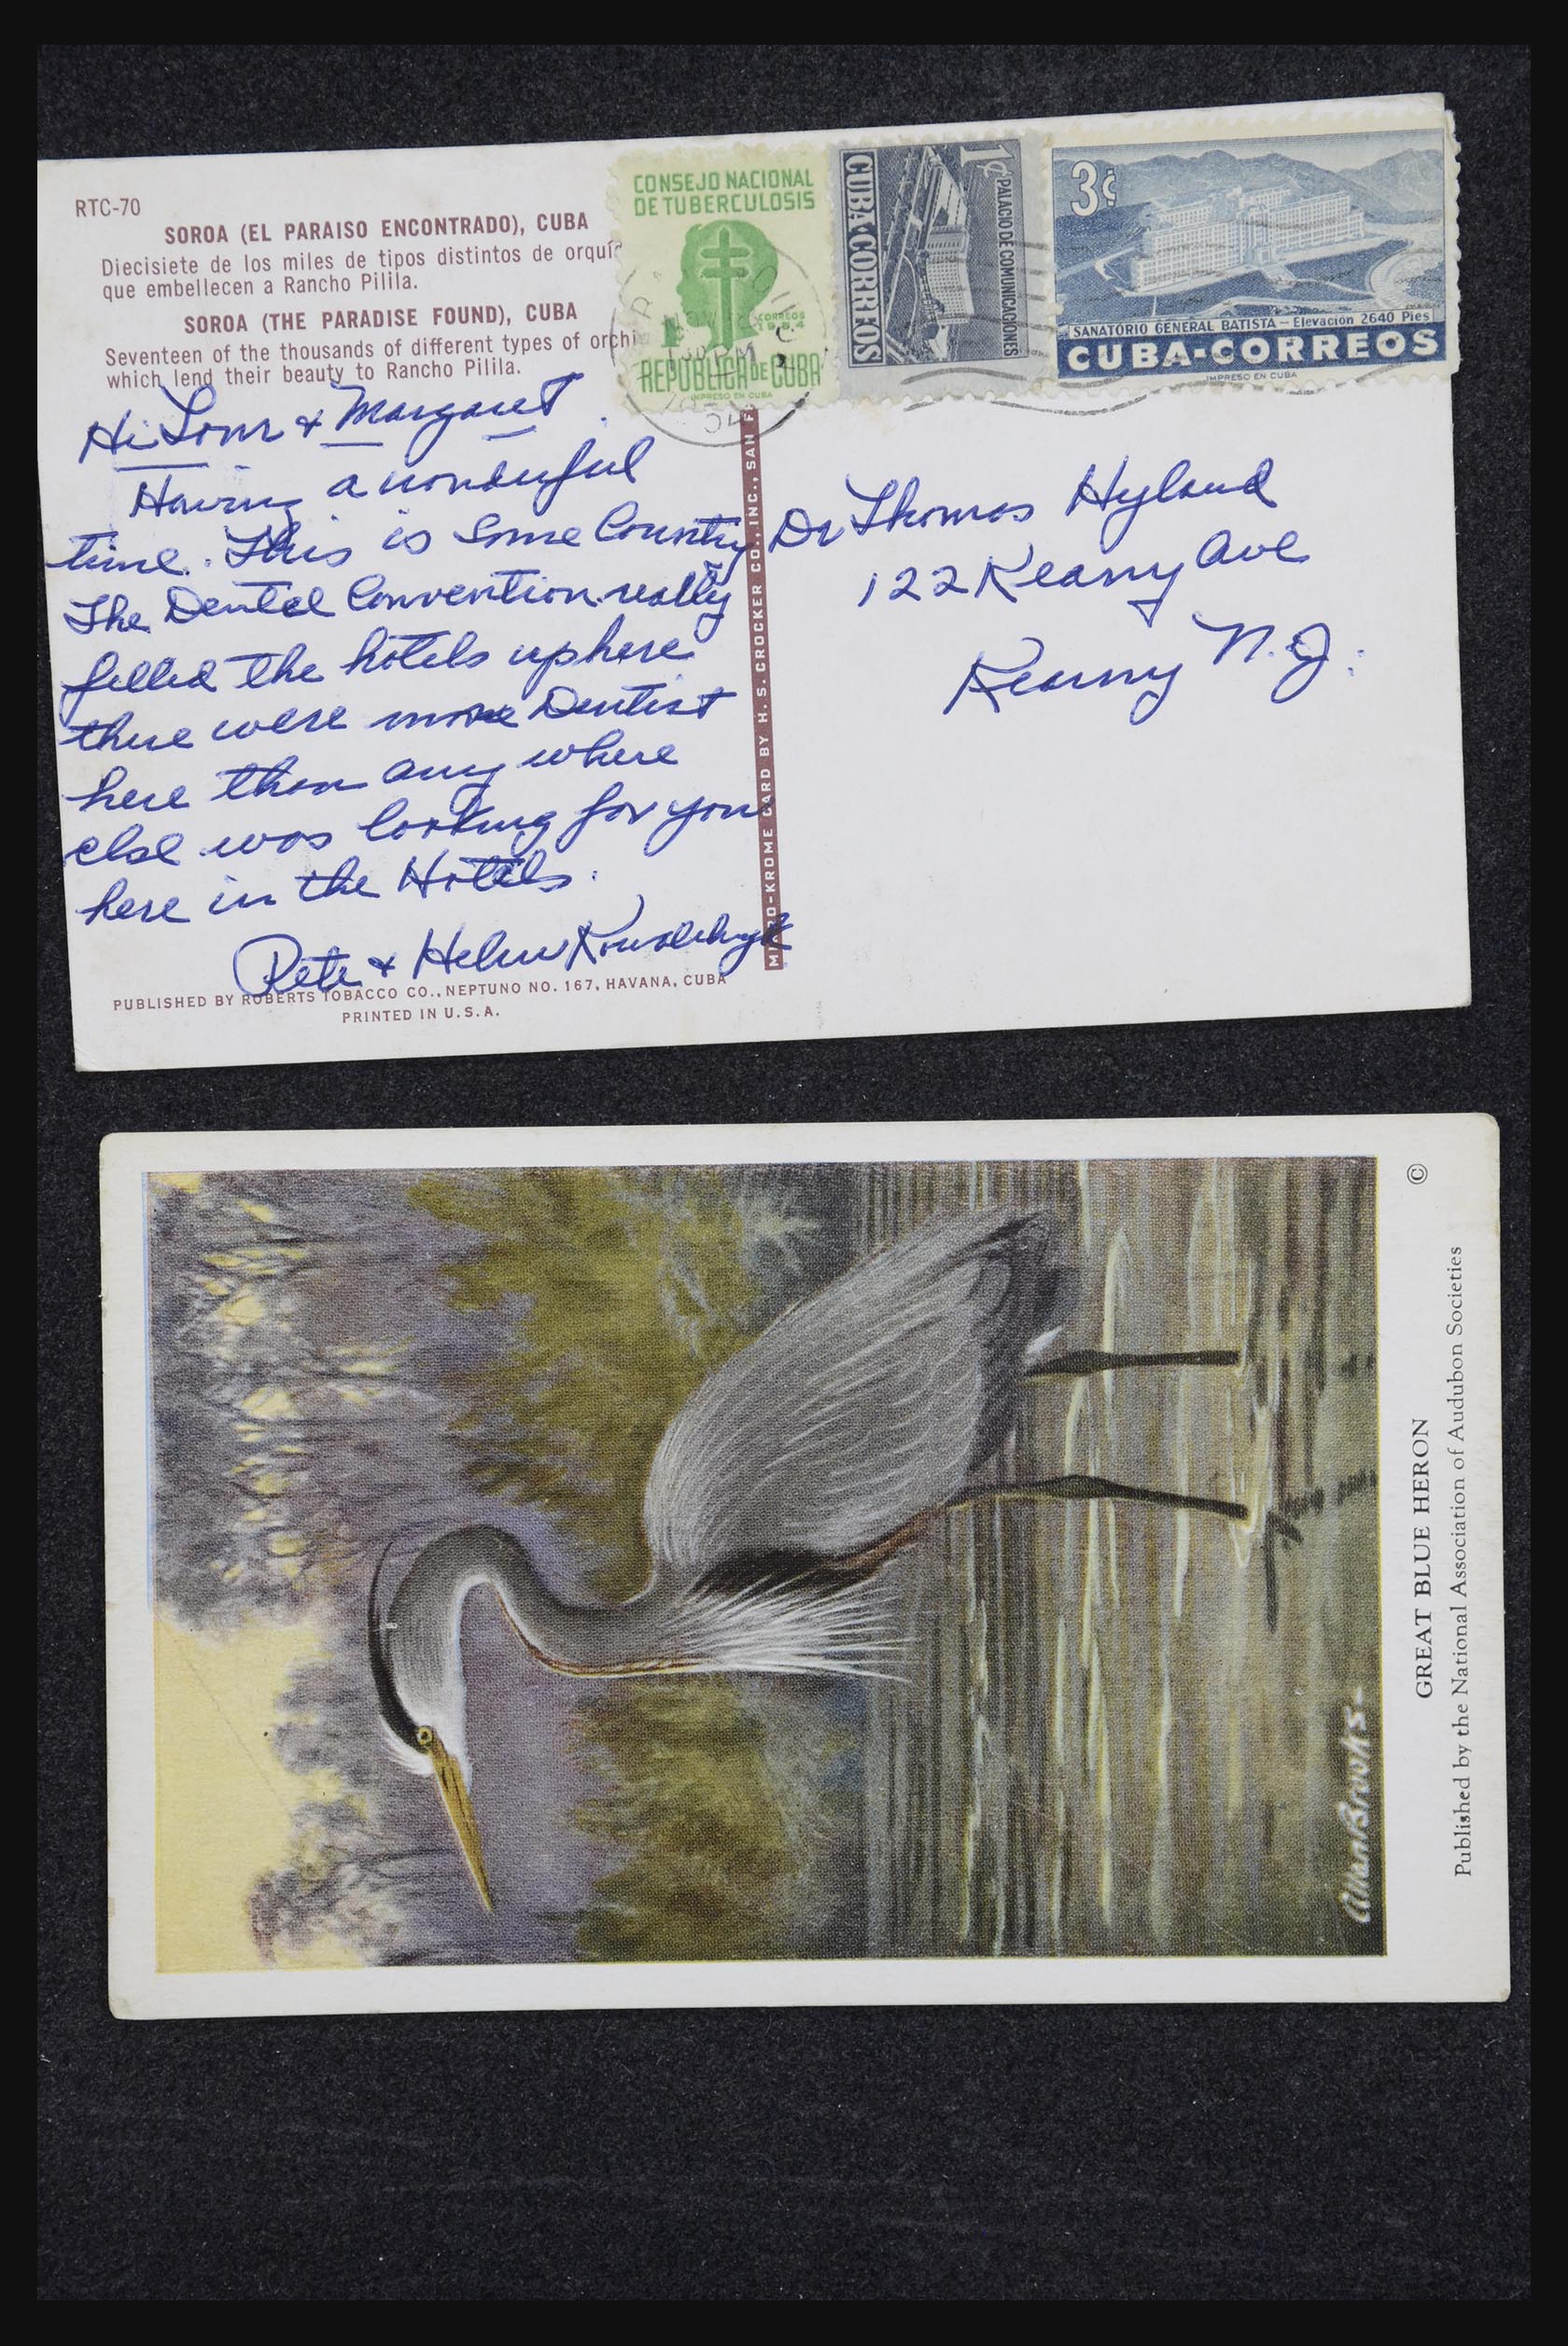 RTC-70
SOROA (EL PARAISO ENCONTRADO), CUBA
Diecisiete de los miles de tipos distintos de orquí
que embellecen a Rancho Pilila.
SOROA (THE PARADISE FOUND), CUBA
Seventeen of the thousands of different types of orchi
which lend their beauty to Rancho Pilila.
CONSEJO NACIONAL
DE TUBERCULOSIS
CORREOS
1954
REPUBLICA DE CUBA
IMPRESO EN CUBA
1¢
PALACIO DE COMUNICACIONES
CUBA·CORREOS
3¢
SANATORIO GENERAL BATISTA — Elevación 2640 Pies
CUBA-CORREOS
IMPRESO EN CUBA
130 PM
54
Hi Tom & Margaret
Having a wonderful
time. This is some Country
The Dental Convention really
filled the hotels up here
there were more Dentist
here than any where
else was looking for you
here in the Hotels.
Pete & Helen
PUBLISHED BY ROBERTS TOBACCO CO., NEPTUNO NO. 167, HAVANA, CUBA
PRINTED IN U.S.A.
-KROME CARD BY H. S. CROCKER CO., INC., SAN F
Dr Thomas Hyland
122 Kearny Ave
Kearny N.J.
Allan Brooks-
©
GREAT BLUE HERON
Published by the National Association of Audubon Societies